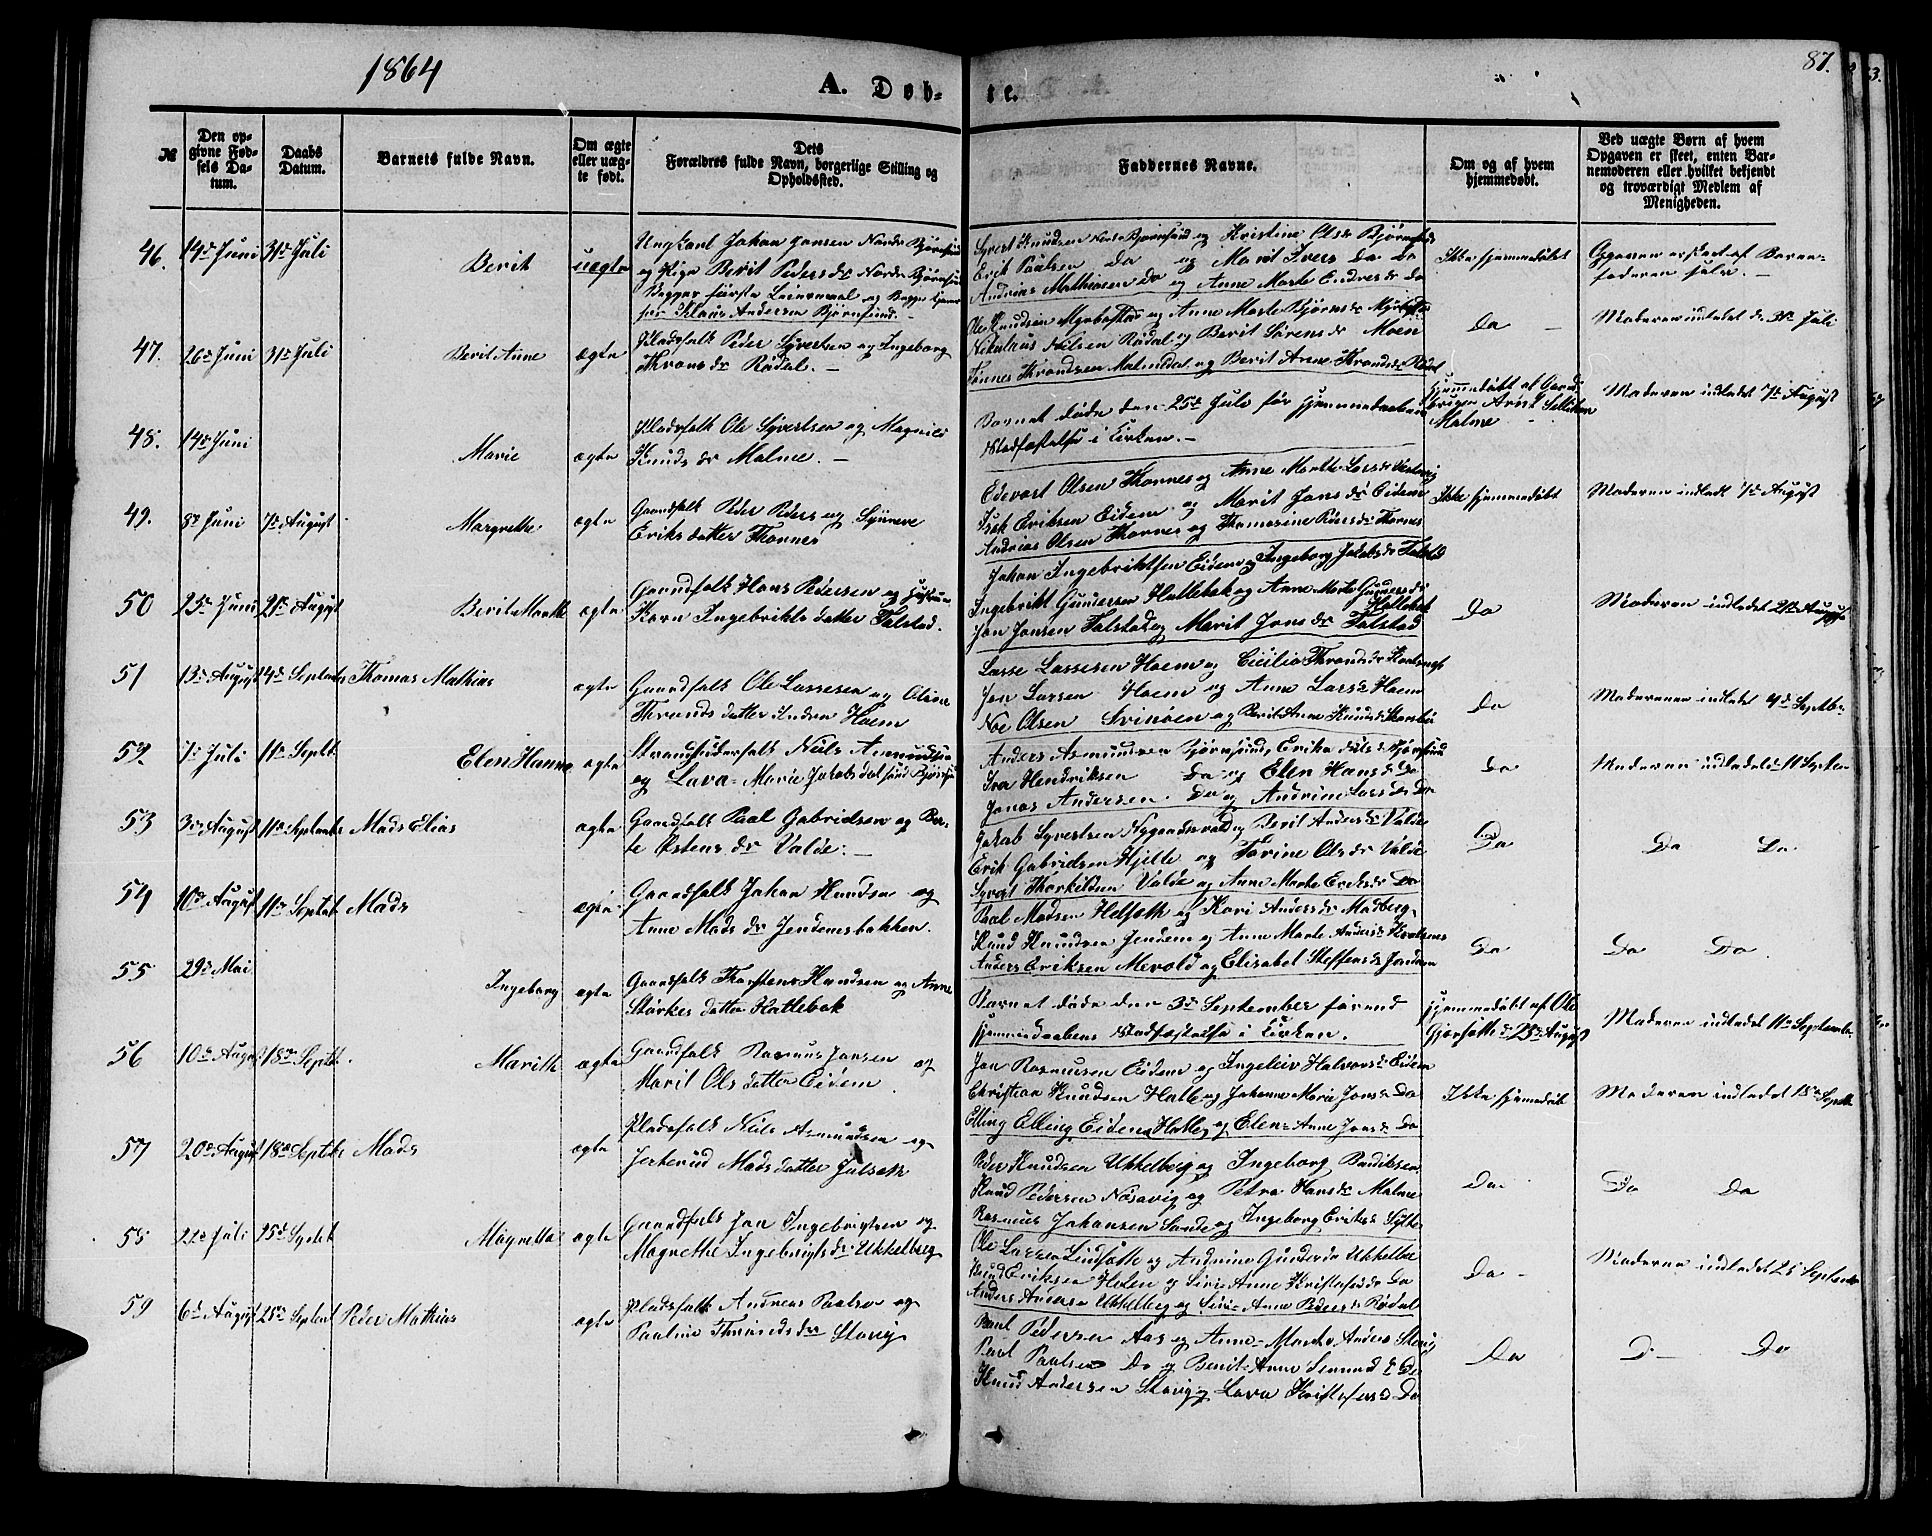 1864
A. Døb-
te.
87.
№
Den op-
givne Fød-
sels Da-
tum.
Daabs
Datum.
Barnets fulde Navn.
Om ægte
eller uæg-
te født.
Dets
Forældres fulde Navn, borgerlige Stilling og
Opholdssted.
Faddernes Navne.
Om og af hvem
hjemmedøbt.
Ved uægte Børn af hvem
Opgaven er skeet, enten Bar-
nemoderen eller hvilket bekjendt
og troværdigt Medlem af
Menigheden.
46. 14de Juni 31te Juli Berit uægte
Ungkarl Johan Jonsen Nordre Bjørnsund
og Pige Berit Peders dr Nordre Bjørnsund
Begges første Leiermaal og Begge tjener
hos Klaus Andersen Bjørnsund. -
Syvert Knudsen Nordre Bjørnsund og Kristine Ols dr Bjørnsund
Erik Paulsen Do og Marit Ivers Do Do
Andrias Mathiasen Do og Anne Marte Endres dr Do
Ikke hjemmedøbt
Opgaven er skeet af Barne-
faderen selv. -
47. 26de Juni 31te Juli Berit Anne ægte
Pladsfolk Peder Syvertsen og Ingeborg
Throns dr Rødal. -
Ole Knudsen Myrbostad og Anne Marte Bjørns dr Myrbostad
Nikolaus Nilsen Rødal og Berit Sørens dr Moen
Tønnes Throndsen Malmedal og Berit Anne Thronds dr Rødal
Do -
Moderen indledet d. 31te Juli
48. 14de Juni Marie ægte
Pladsfolk Ole Syvertsen og Magnild
Knuds dr Malme. -
Barnet døde den 25de Juli før hjemmedaabens
Stadfæstelse i Kirken. -
Hjemmedøbt af Gaard-
Malme
Moderen indledet 7de August
49. 8de Juni 7de August Margrethe ægte
Gaardfolk Peder Peders og Synneve
Eriksdatter Thornes
Edevart Olsen Thornes og Anne Marthe Lars dr
Isak Eriksen Eidem og Marit Jons dr Eidem
Andrias Olsen Thornes og Thomasine Peders dr Thornes
Ikke hjemmedøbt
Moderen indledt 7de August
50 25de Juni 21de August Berit Marthe ægte
Gaardfolk Hans Pedersen og Hustru
Karn Ingebrikts datter Talstad.
Johan Ingebriktsen Eidem og Ingeborg Jakobs dr Talstad
Ingebrikt Gundersen Hallebak og Anne Marte Gunders dr
Hallebak
Jon Jonsen Talstad og Marit Jons dr Talstad
Do
Moderen indledet 21de August
51 13de August 4de Septembr Thomas Mathias ægte
Gaardfolk Ole Lassesen og Oline
Thronds datter Indre Hoem
Lasse Lassesen Hoem og Cicilia Thronds dr
Jon Larsen Hoem og Anne Lars dr Hoem
Noe Olsen Svinøen og Berit Anne Knuds dr
Do
Moderenen indledet 4de Septbr
52. 7de Juli 11te Septb Elen Hanna ægte
Strandsidderfolk Nils Asmundsen
og Lava-Marie Jakobs dr Bjørnsund
Anders Asmundsen Bjørnsund, Erika Bjørnsund
Iver Hendriksen Do og Elen Hans dr Do
Jonas Andersen. Do og Andrine Lars dr Do
Do
Moderen indledet 11 Septem
53 3de August 11te Septembr Mads Elias ægte
Gaardfolk Paal Gabrielsen og Ber-
te Østens dr Valde. -
Jakob Syvertsen Nygaardsvold og Berit Anders dr Valde
Erik Gabrielsen Hjelle og Torine Ols dr Valde
Syvert Thorkildsen Valde og Anne Marte Eriks dr Do
Do
Do Do
54 10de August 11te Septbr Mads ægte
Gaardfolk Johan Knudsen og
Anne Mads dr Jendemsbakken.
Paal Madsen Helseth og Kari Anders dr Madberg
Knud Knudsen Jendem og Anne Marte Anders dr
Anders Eriksen Mevold og Elisabet Steffens dr Jendem
Do
Do Do
55 29de Mai Ingeborg ægte
Gaardfolk Thorsten Knudsen og Anne
Størkes datter Hallebak
Barnet døde den 3de September førend
hjemmedaabens Stadfæstelse i Kirken.
hjemmedøbt af Ole
Gjersette d. 23de August
Moderen indledet 11te September
56 10de August 18de Septbr. Marith ægte
Gaardfolk Rasmus Jonsen og
Marit Ols datter Eidem
Jon Rasmusen Eidem og Ingeleiv Halvors dr Eidem
Christian Knudsen Halle og Johanne Marie Jons dr Do
Elling Elling Eidem Halle og Elen-Anne Jons dr Do
Ikke hjemmedøbt
Moderen indledet 18de Septb
57 20de August 18de Septbr Mads ægte
Pladsfolk Nils Asmundsen og
Jertrud Mads datter Julsæt
Peder Knudsen Ukkelberg og Ingeborg Bendiksen
Knud Pedersen Nøsavig og Petra Hans dr Malme
Rasmus Johansen Sande og Ingeborg Eriks dr Sylte
Do
Do Do
58 22de Juli 25de Septbr Magnetta ægte
Gaardfolk Jon Ingebrigtsen og
Magnethe Ingebrigts dr Ukkelberg
Ole Larsen Lindseth og Andrine Gunders dr Ukkelbe
Knud Eriksen Holen og Siri-Anne Kristofers dr Do
Anders Andersen Ukkelberg og Siri-Anne Peders dr Rødal
Do -
Moderen indledet 25 Septembr
59 6de August 25de Septbr Peder Mathias ægte
Pladsfolk Andreas Paulsen og
Pauline Thronds dr Stavig
Paul Pedersen Aas og Anne-Marte Anders Stavig
Paul Paulsen Do og Berit-Anne Do
Knud Andersen Stavig og Lava Kristofers dr Do
Do
D- Do